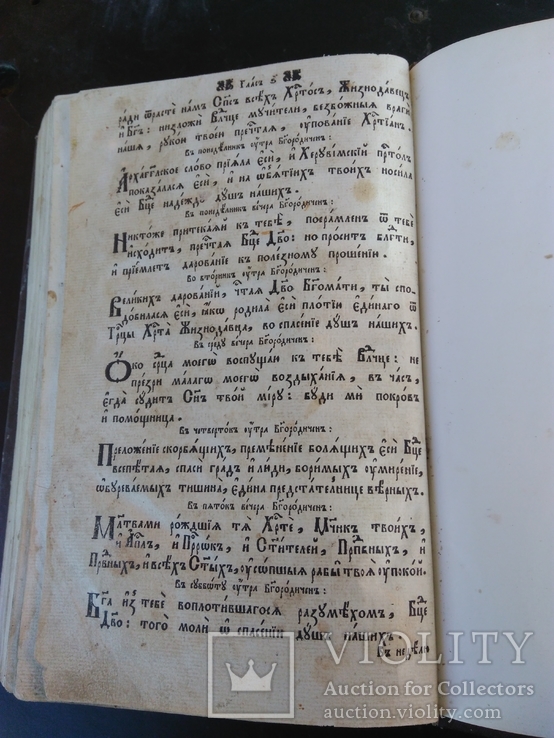 Гласъ ѕ҃
ради ѿ расте намъ Сп҃съ всѣхъ Хрⷭ҇тосъ, Жизнодавецъ
и҆ Бг҃ъ: низложи Влⷣчце мучители, безбожныѧ враги
нашѧ, рꙋкой твоей пречⷭ҇таѧ, ᲂу҆пованїе Хрⷭ҇тїанъ.
Въ понедѣльникъ ᲂу҆тра бг҃ородиченъ:
Архагг҃лское слово прїѧла є҆сѝ, и҆ Херꙋвімскїй прⷭ҇толъ
показаласѧ є҆сѝ, и҆ на ѡ҆бѧтїихъ твоихъ носила
є҆сѝ Бц҃е надеждꙋ дꙋшъ нашихъ.
Въ понедѣльникъ вечера бг҃ородиченъ:
Никтоже притекаѧй къ тебѣ, посрамленъ ѿ тебе
и҆сходитъ, пречⷭ҇таѧ Бц҃е Дв҃о: но проситъ блгⷣти,
и҆ прїемлетъ дарованїе къ полезномꙋ прошенїи.
Во вторникъ ᲂу҆тра бг҃ородиченъ:
Великихъ дарованїй, чⷭ҇таѧ Дв҃о Бг҃омати, ты спо-
добиласѧ є҆сѝ, ꙗ҆кѡ родила є҆сѝ плотїи є҆динаго ѿ
Трⷪ҇цы Хрⷭ҇та Жизнодавца, во спасенїе дꙋшъ нашихъ.
Въ средꙋ вечера бг҃ородиченъ:
Ѻ҆ко срⷣца моегѡ воспꙋщаи къ тебѣ Влⷣчце: не
презри малагѡ моегѡ воздыханїѧ, въ часъ,
є҆гда сꙋдитъ Сн҃ъ твой мірꙋ: бꙋди ми покровъ
и҆ помощница.
Въ четвертокъ ᲂу҆тра бг҃ородиченъ:
Преложенїе скорбѧщихъ, премѣненїе болѧщихъ є҆сѝ Бц҃е
всепѣтаѧ, спаси градъ и҆ люди, боримыхъ ᲂу҆миренїе,
ѡ҆бꙋреваемыхъ тишина, є҆дина предстателнице вѣрныхъ.
Въ патокъ вечера бг҃ородиченъ:
Млт҃вами рождшїѧ тѧ Хрⷭ҇те, Мч҃нкъ твоихъ,
и҆ Апⷭ҇лъ, и҆ Прⷪ҇рокъ, и҆ Ст҃ителей, Прпⷣбныхъ, и҆
Првⷣныхъ, и҆ всѣхъ Ст҃ыхъ, ᲂу҆сопшыѧ рабы твоѧ ᲂу҆покой.
Въ сꙋббѡтꙋ ᲂу҆тра бг҃ородиченъ:
Бг҃а и҆з̾ тебе воплотившагосѧ разꙋмѣхомъ, Бц҃е
Дв҃о: того моли ѡ҆ спасенїи дꙋшъ нашихъ.
Въ недѣлю
VIOLITY
Auction for Collectors
auction.violity.com